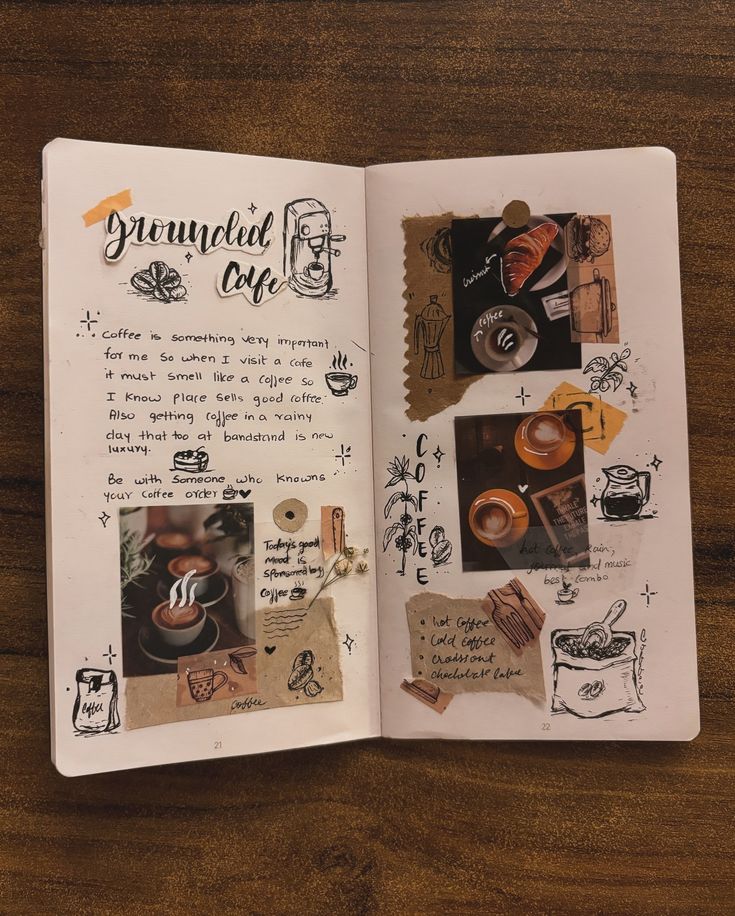 grounded
Cafe
Coffee is something very important
for me so when I visit a cafe
it must smell like a coffee so
I know place sells good coffee.
Also getting coffee in a rainy
day that too at bandstand is new
luxury.
Be with someone who knowns
your coffee order
Today's good
mood is
sponsored by
Coffee
coffee
Coffee
21
croissant
coffee
COFFEE
INHALE
THE FUTURE
EXHALE
THE PAST
hot coffee, Rain,
journal and music
best combo
hot coffee
Cold coffee
croissant
chocholate cake
22